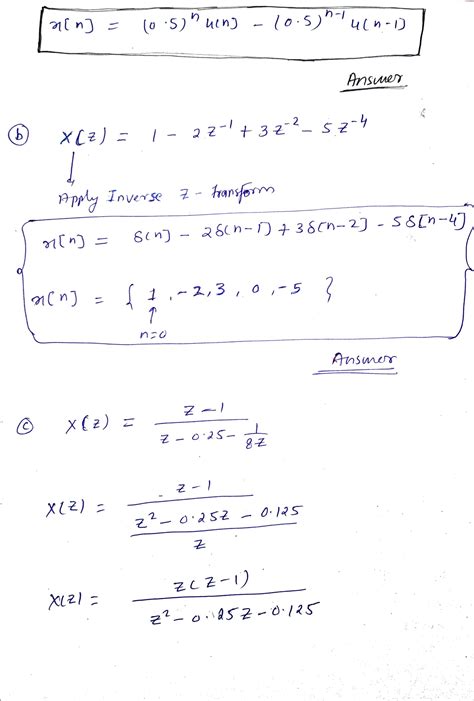 x[n] = (0.5)^n u[n] - (0.5)^{n-1} u[n-1]
Answer
(b) X(z) = 1 - 2z^{-1} + 3z^{-2} - 5z^{-4}
↓
Apply Inverse z-transform
x[n] = δ[n] - 2δ[n-1] + 3δ[n-2] - 5δ[n-4]
x[n] = { 1, -2, 3, 0, -5 }
↑
n=0
Answer
(c) X(z) = (z-1) / (z - 0.25 - 1/(8z))
X(z) = (z-1) / ((z^2 - 0.25z - 0.125) / z)
X(z) = z(z-1) / (z^2 - 0.25z - 0.125)